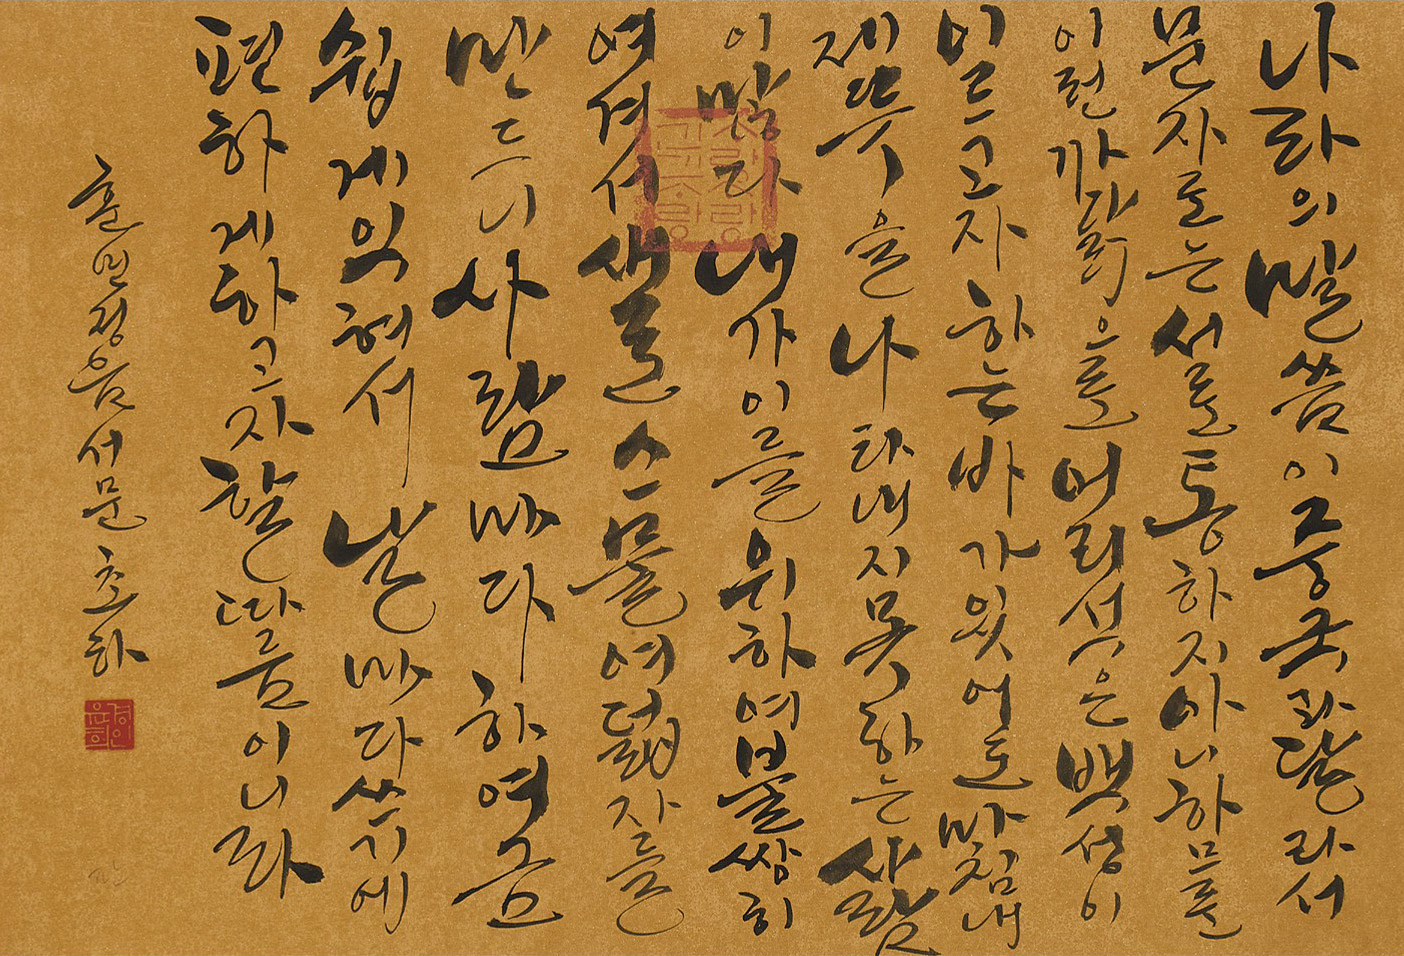 나라의 말씀이 중국과 달라서
문자로는 서로 통하지 아니하므로
이런 까닭으로 어리석은 백성이
이르고자 하는 바가 있어도 마침내
제 뜻을 나타내지 못하는 사람
이 많다 내가 이를 위하여 불쌍히
여겨서 새로 스물여덟 자를
만드니 사람마다 하여금
쉽게 익혀서 날마다 쓰기에
편하게 하고자 할 따름이니라
훈민정음 서문 초하